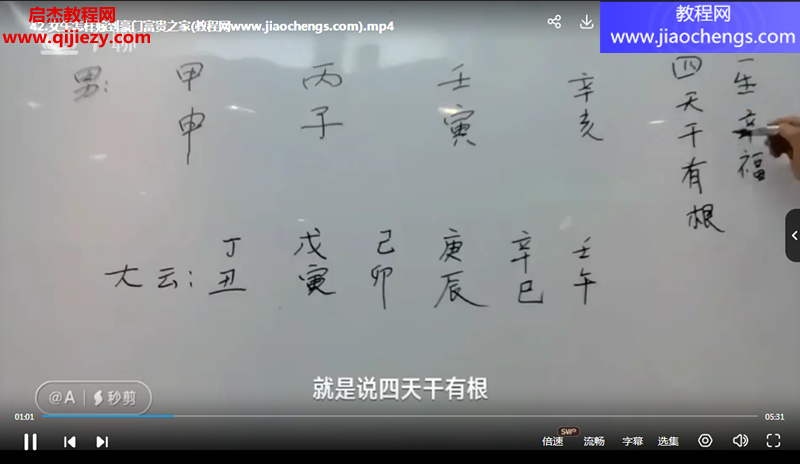 启杰教程网
www.qijiezy.cn
豪门富贵之家(教程网www.jiaochengs.com).mp4
教程网
www.jiaochengs.com
男: 甲 丙 壬 辛
申 子 寅 亥
四天干有根
一生幸福
大云: 丁 戊 己 庚 辛 壬
丑 寅 卯 辰 巳 午
就是说四天干有根
@A 秒剪
01:01
05:31
倍速 SVIP 流畅 字幕 选集